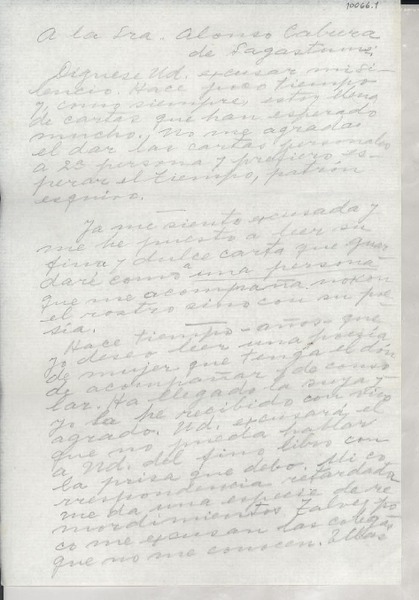 10066.1
A la Sra. Alonso Cabrera
de Sagastume:
Dígnese Ud. excusar mi si-
lencio. Hace poco tiempo
y, como siempre, estoy llena
de cartas que han esperado
mucho. No me agrada
el dar las cartas personales
a 2a persona y prefiero es-
perar el tiempo, patrón
esquivo.
Ya me siento excusada y
me he puesto a leer su
fina y dulce carta que guar-
daré como a una persona
que me acompaña no con
el rostro sino con su poe-
sía.
Hace tiempo -años- que
yo deseo leer una poesía
de mujer que tenga el don
de acompañar y de conso-
lar. Ha llegado la suya y
yo la he recibido con vivo
agrado. Ud. excusará el
que no pueda hablar
a Ud. del fino libro con
la prisa que debo. Mi co-
rrespondencia retardada
me da una especie de re-
mordimientos. Tal vez po-
co me excusan las colegas
que no me conocen. Ellas